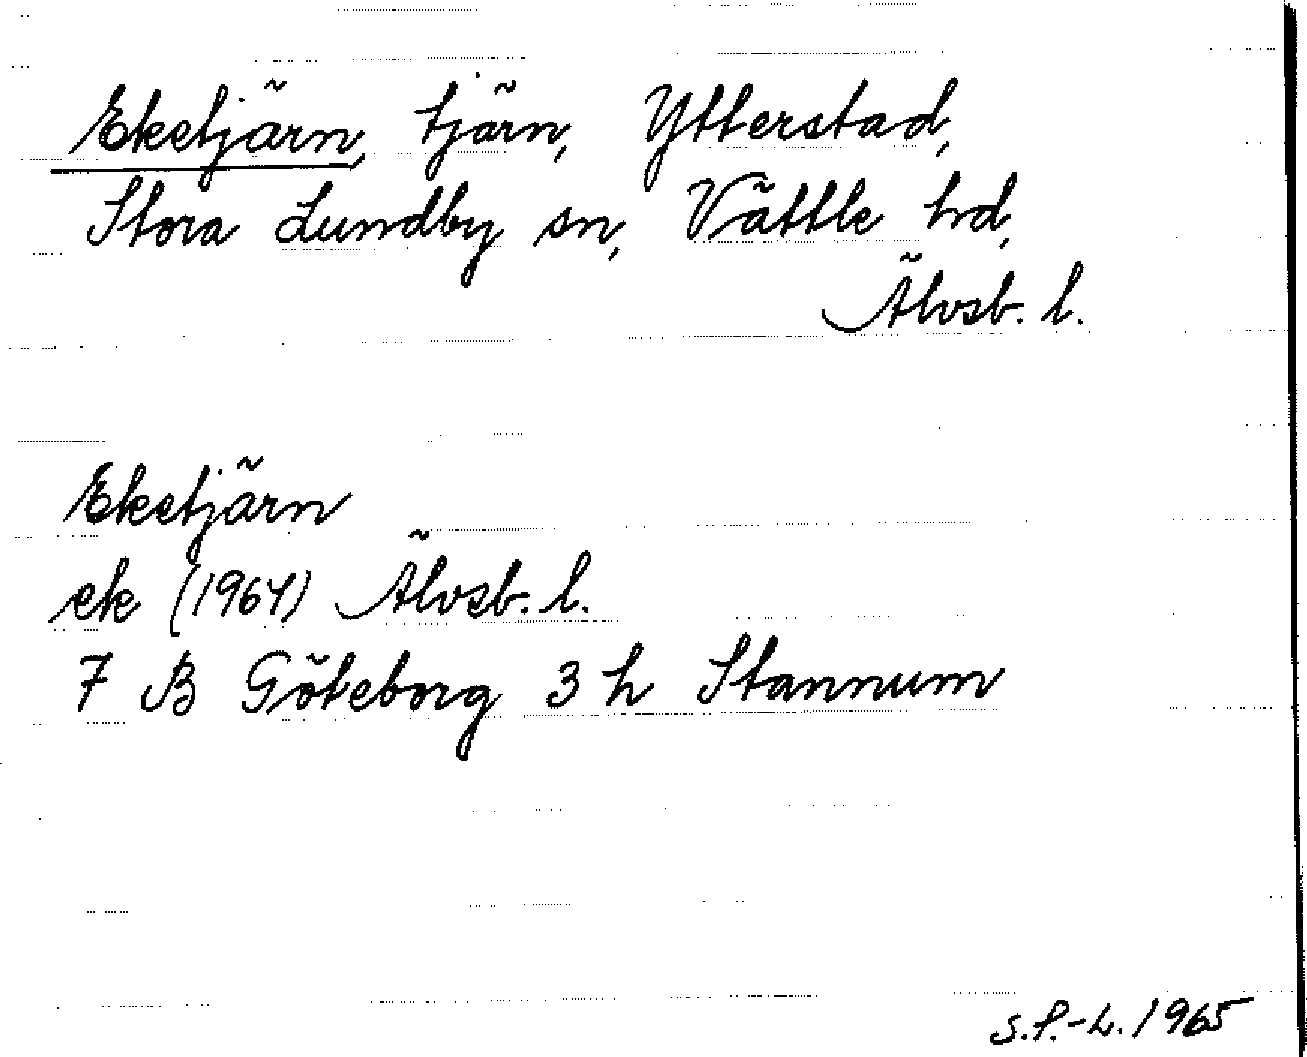 Eketjärn, tjärn, Ytterstad,
Stora Lundby sn, Vättle hd,
Älvsb. l.
Eketjärn
ek (1964) Älvsb. l.
7 B Göteborg 3 h Stannum
S.P.-L. 1965